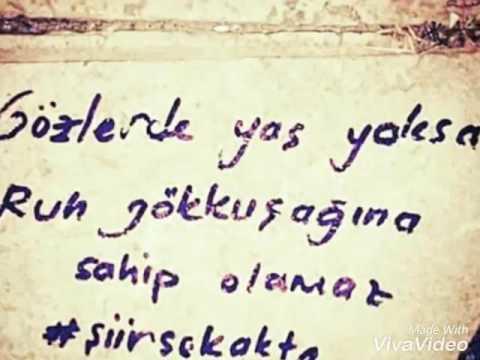 Gözlerde yaş yoksa
Ruh gökkuşağına
sahip olamaz
#şiirsokakta
Made With
VivaVideo